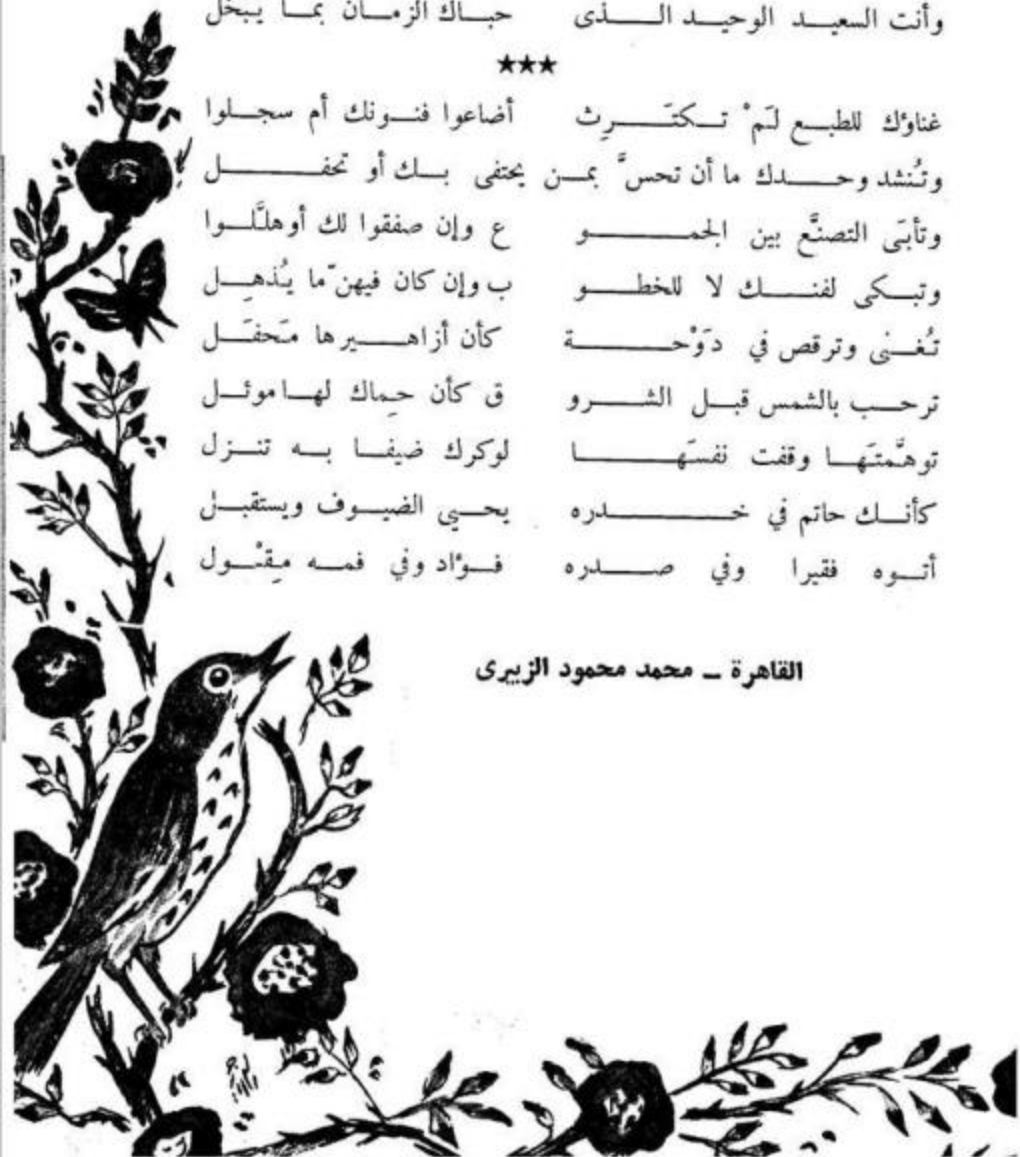 وأنت السعيد الوحيد الذى حباك الزمان بما يبخل
★★★
غناؤك للطبع لَمْ تكتَرِث أضاعوا فنونك أم سجلوا
وتُنشد وحدك ما أن تحسَّ بمن يحتفى بك أو تحفل
وتأبَى التصنُّع بين الجمو ع وإن صفقوا لك أوهلَّلوا
وتبكى لفنك لا للخطو ب وإن كان فيهنّ ما يُذهِل
تُغنى وترقص في دَوْحة كأن أزاهيرها مَحفَل
ترحب بالشمس قبل الشرو ق كأن حِماك لها موئل
توهَّمتَها وقفت نفسَها لوكرك ضيفا به تنزل
كأنك حاتم في خدره يحيي الضيوف ويستقبل
أتوه فقيرا وفي صدره فؤاد وفي فمه مِقْول
القاهرة ــ محمد محمود الزبيرى